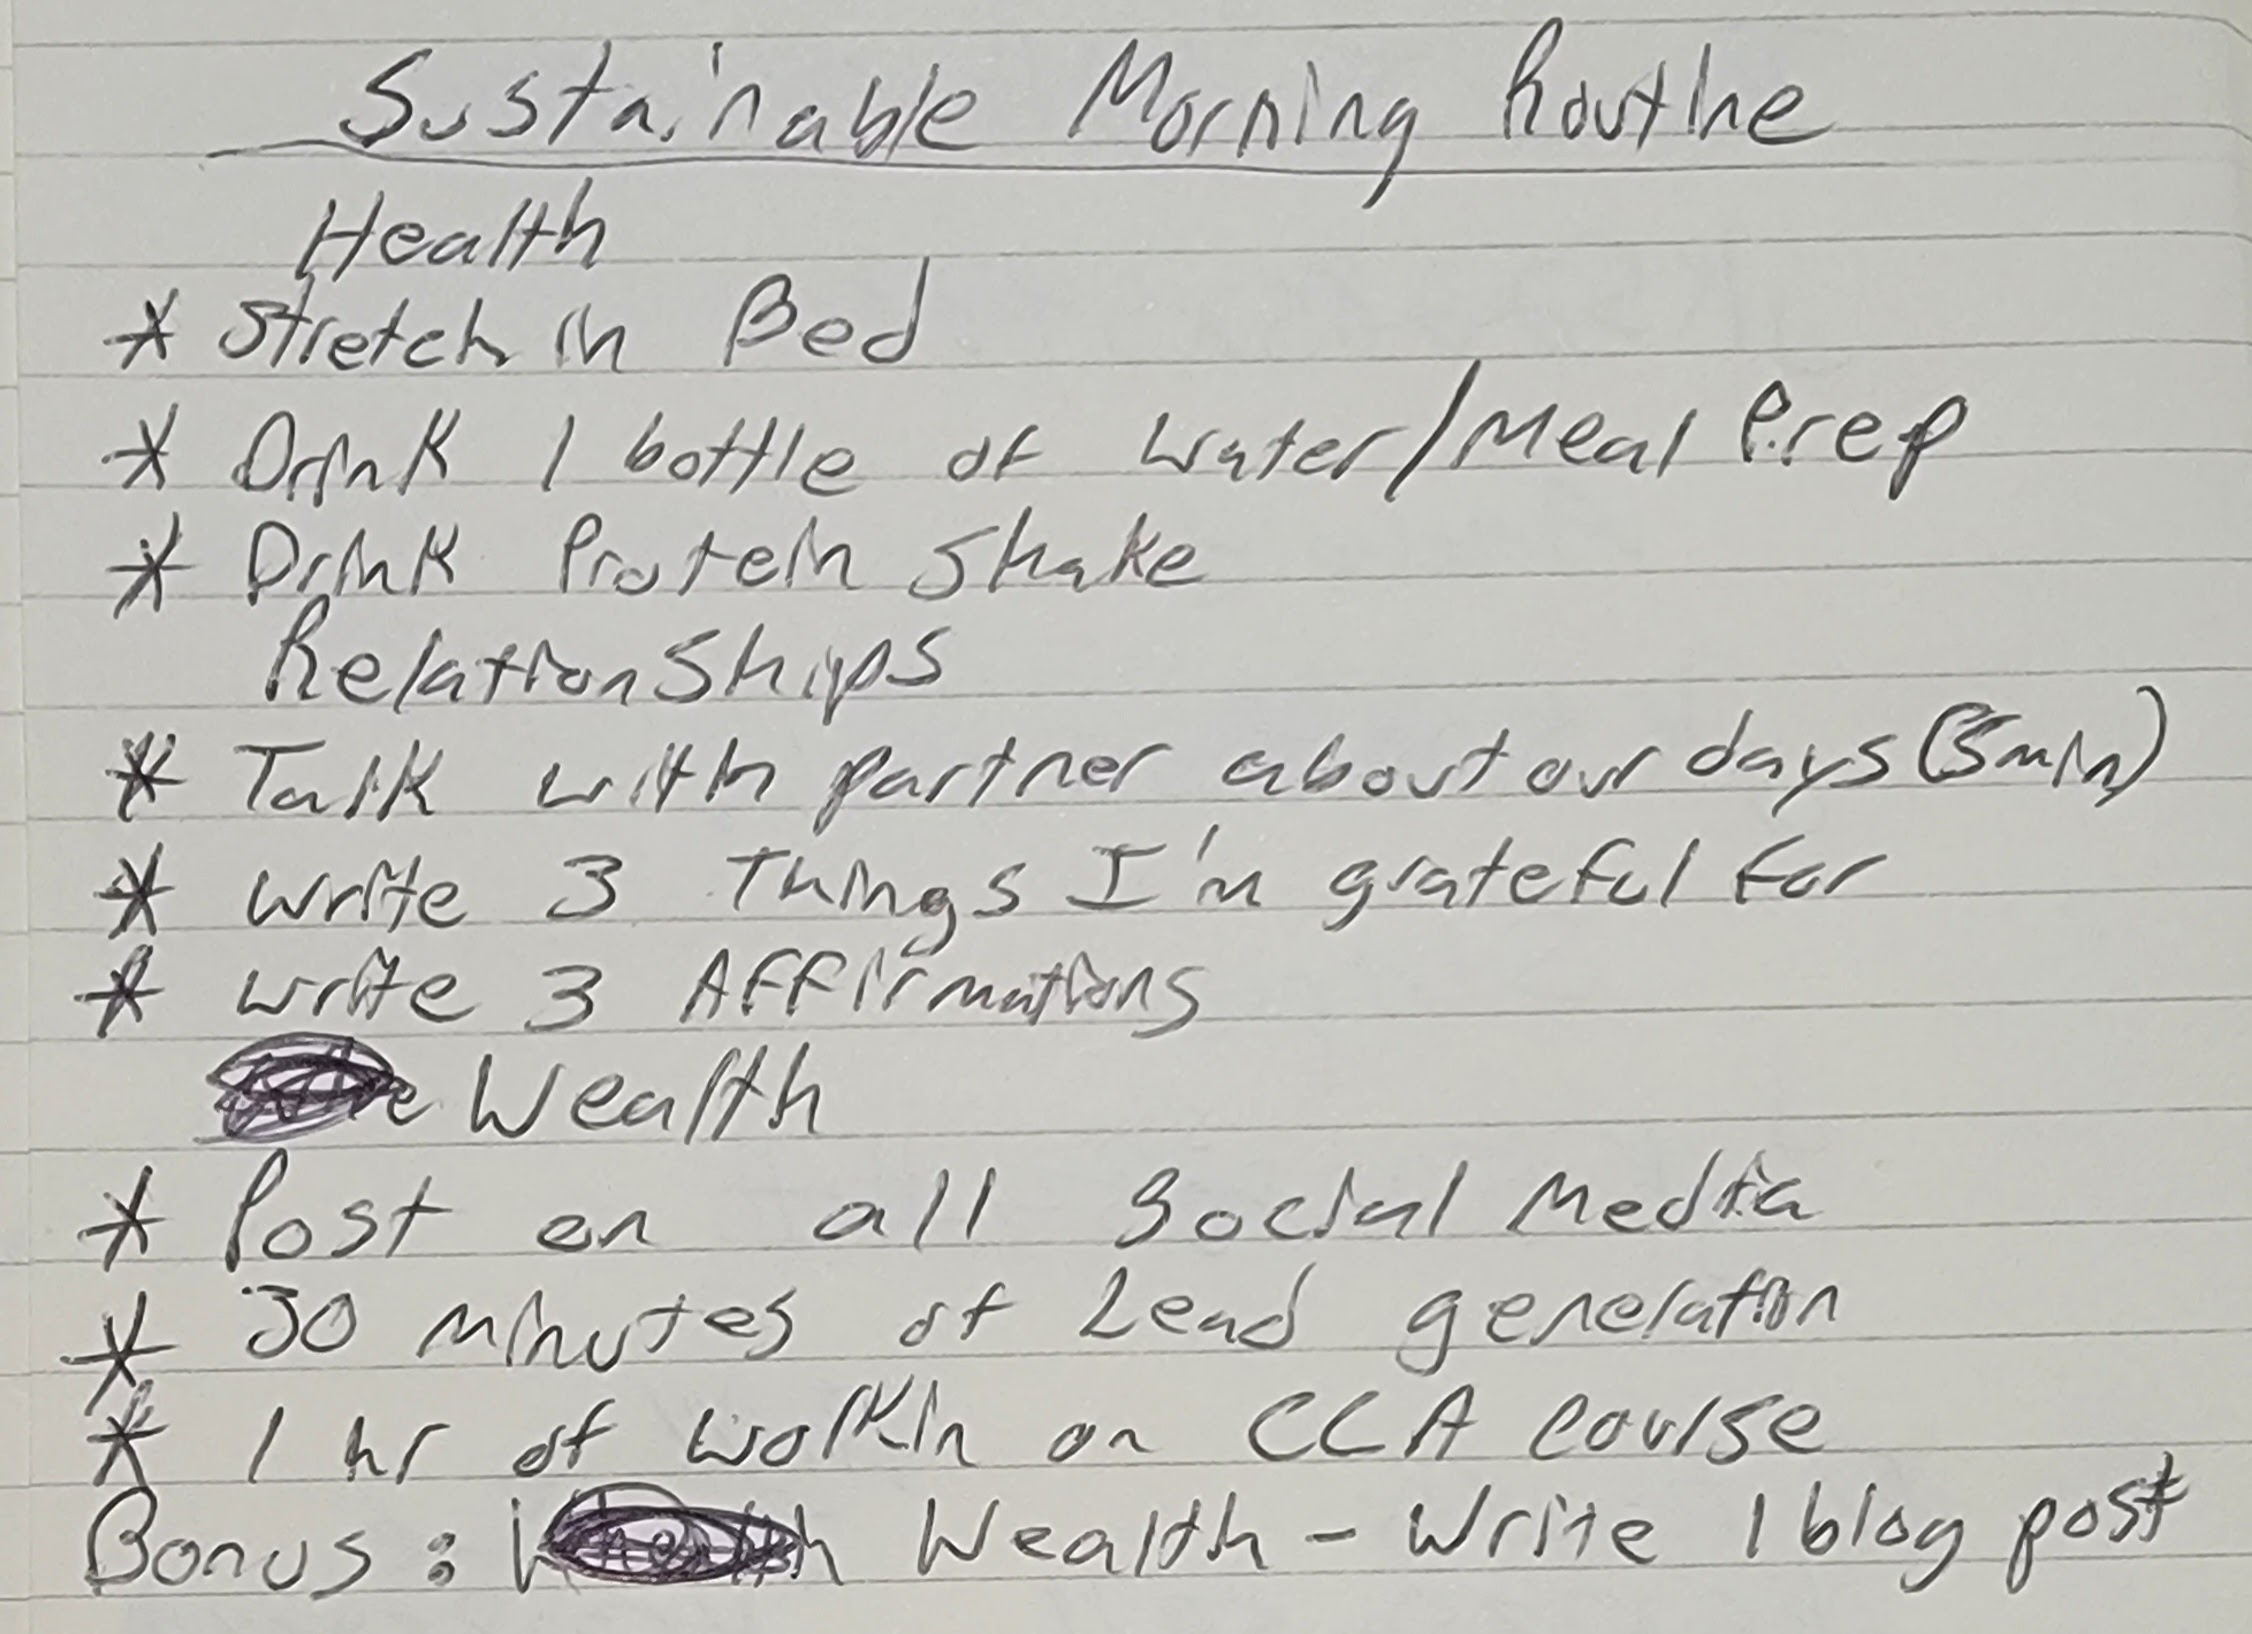 Sustainable Morning Routine
Health
* Stretch in Bed
* Drink 1 bottle of water/Meal Prep
* Drink Protein Shake
Relationships
* Talk with partner about our days (5min)
* write 3 Things I'm grateful for
* write 3 Affirmations
Wealth
* Post on all Social Media
* 30 minutes of Lead generation
* 1 hr of workin on CCA course
Bonus: Wealth - Write 1 blog post